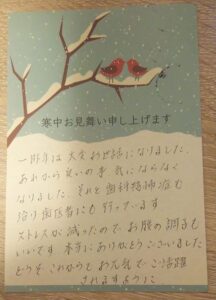 寒中お見舞い申し上げます
一昨年は大変お世話になりました。
あれから臭いの事 気にならなく
なりました。それと歯科恐怖症も
治り歯医者にも行っています
ストレスが減ったので お腹の調子も
いいです 本当にありがとうございました
どうぞ これからも お元気で ご活躍
されますように